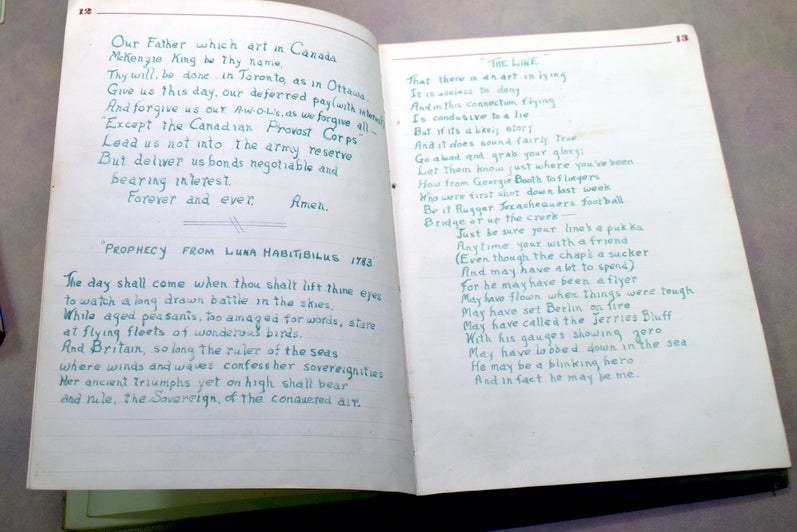 12
Our Father which art in Canada
McKenzie King be thy name,
Thy will, be done in Toronto, as in Ottawa,
Give us this day, our deferred pay (with interest)
And forgive us our A.W.O.L's, as we forgive all—
"Except the Canadian Provost Corps"
Lead us not into the army reserve
But deliver us bonds negotiable and
bearing interest.
Forever and ever. Amen.
"PROPHECY FROM LUNA HABITIBILUS 1783"
The day shall come when thou shalt lift thine eyes
to watch a long drawn battle in the skies.
While aged peasants, too amazed for words, stare
at flying fleets of wonderous birds.
And Britain, so long the ruler of the seas
where winds and waves confess her sovereignities
Her ancient triumphs yet on high shall bear
and rule, the Sovereign, of the conquered air.
13
"THE LINE"
That there is an art in lying
It is useless to deny
And in this connection flying
Is condusive to a lie
But if its a likely story
And it does sound fairly true
Go ahead and grab your glory;
Let them know just where you've been
How from Georgie Booth to fliegers
Who were first shot down last week
Be it Rugger Texachequers Football
Bridge or up the creek—
Just be sure your line's a pukka
Anytime your with a friend
(Even though the chap's a sucker
And may have a lot to spend)
For he may have been a flyer
May have flown when things were tough
May have set Berlin on fire
May have called the Jerries Bluff
With his gauges showing zero
May have lobbed down in the sea
He may be a blinking hero
And in fact he may be me.